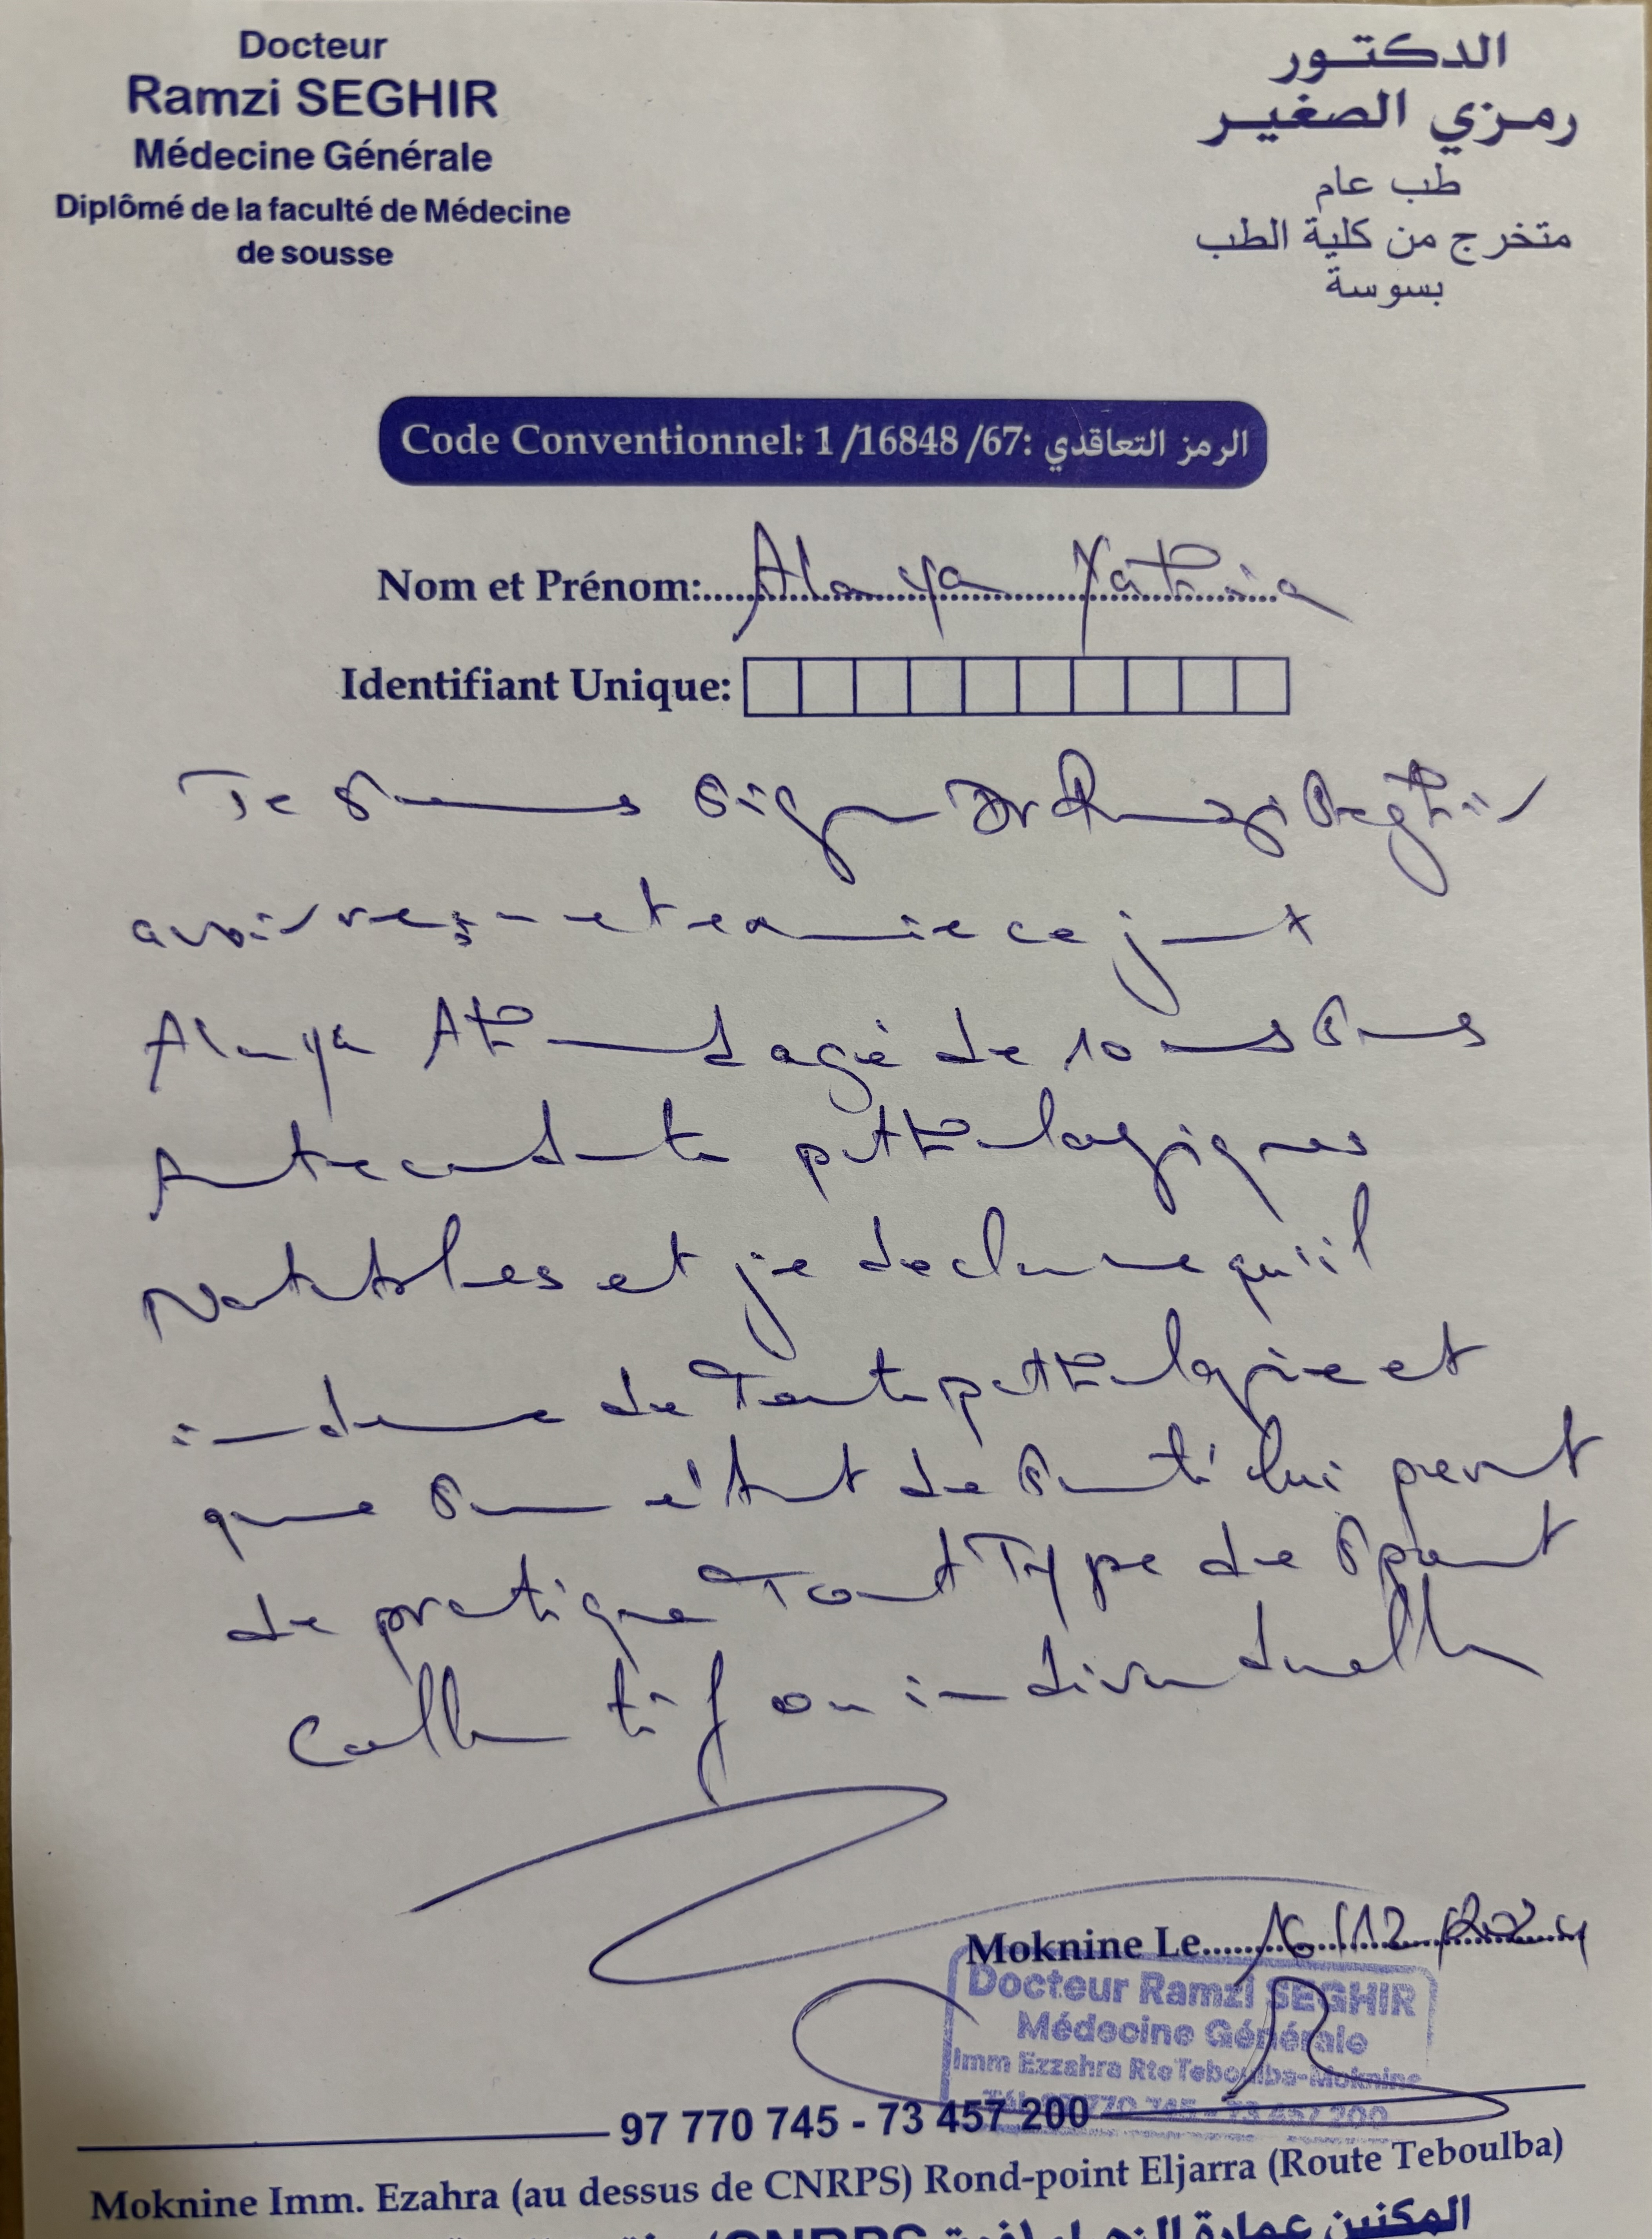 Docteur
Ramzi SEGHIR
Médecine Générale
Diplômé de la faculté de Médecine
de sousse
الدكتور
رمزي الصغير
طب عام
متخرج من كلية الطب
بسوسة
Code Conventionnel: 1/16848/67: الرمز التعاقدي
Nom et Prénom: Alaya
Identifiant Unique:
Je sous signe Dr Ramzi Seghir
avoir reçu et examine ce jour
Alaya agé de 10 ans sans
Antecedents pathologiques
Notables et je declare qu'il
indeme de toute pathologie et
que son état de santé lui permet
de pratique Tout Type de Sport
Collectif ou individuelle
Moknine Le 16/12/2024
Docteur Ramzi SEGHIR
Médecine Générale
Imm Ezzahra Rte Teboulba-Moknine
Tél: 97 770 745 - 73 457 200
97 770 745 - 73 457 200
Moknine Imm. Ezahra (au dessus de CNRPS) Rond-point Eljarra (Route Teboulba)
المكنين عمارة الزهراء (فوق CNRPS)